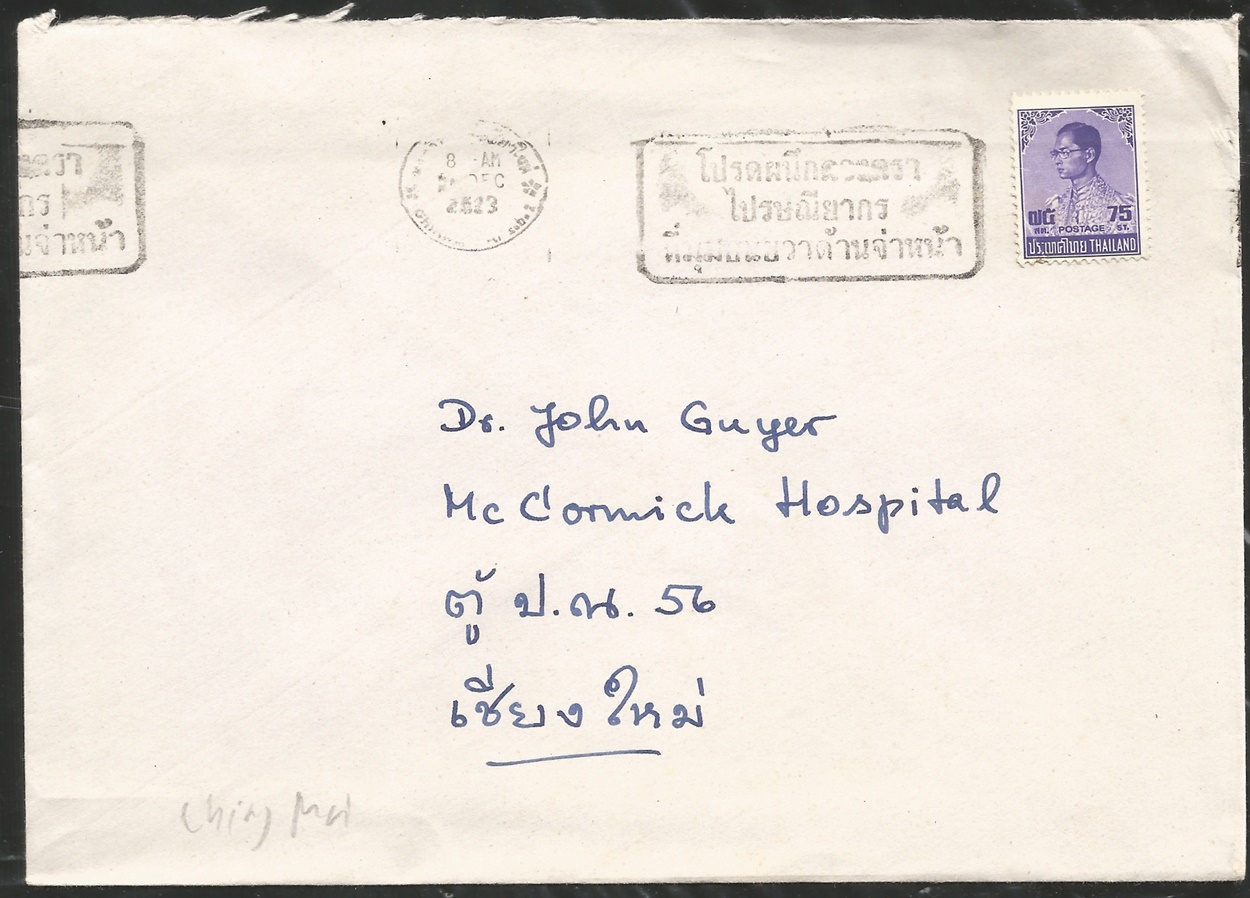 ตรา
กร
จ่าหน้า
8 AM
DEC
2523
โปรดผนึกดวงตรา
ไปรษณียากร
ที่มุมบนขวาด้านจ่าหน้า
๗๕ 75
สต. POSTAGE ST.
ประเทศไทย THAILAND
Dr. John Guyer
Mc Cormick Hospital
ตู้ ป.ณ. 56
เชียงใหม่
Chiang Mai